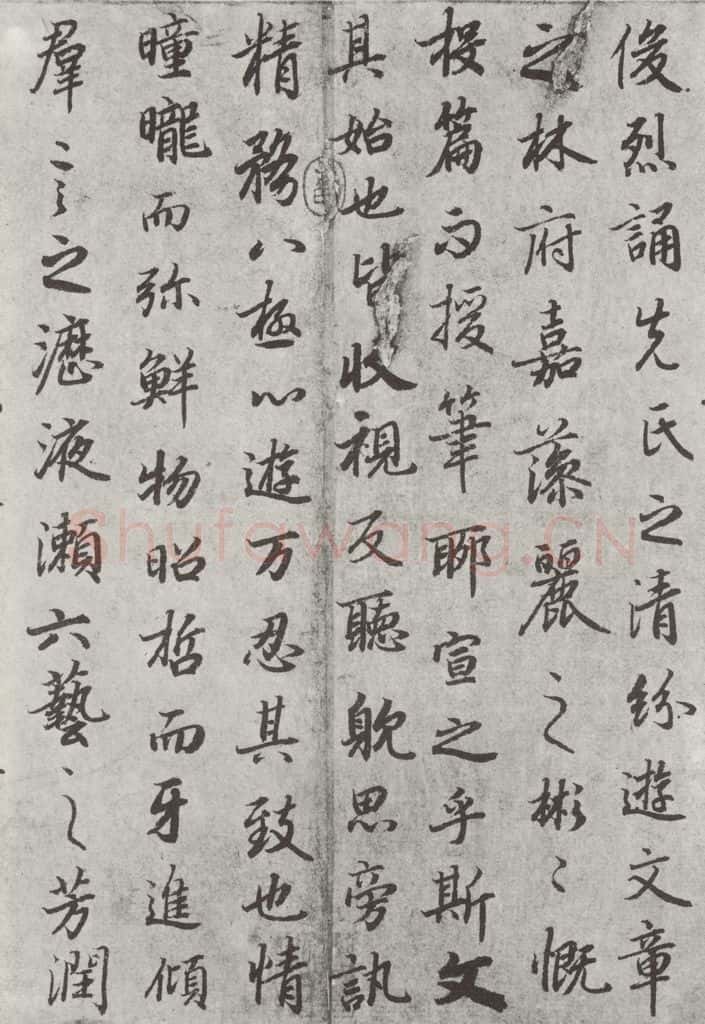 俊烈誦先氏之清紛遊文章
之林府嘉藻麗之彬〻慨
投篇而援筆聊宣之乎斯文
其始也皆收視反聽躭思旁訊
精務八極心遊万忍其致也情
曈曨而弥鮮物昭晢而牙進傾
羣言之瀝液瀨六藝之芳潤
Shufawang.CN